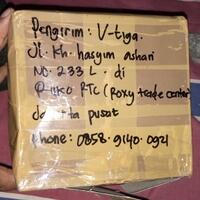 Pengirim : V-tiga.
Jl. Kh. hasyim ashari
NO. 233 L. di
Ruko RTC (Roxy trade center
pusat
phone: 0858. 9140. 0921